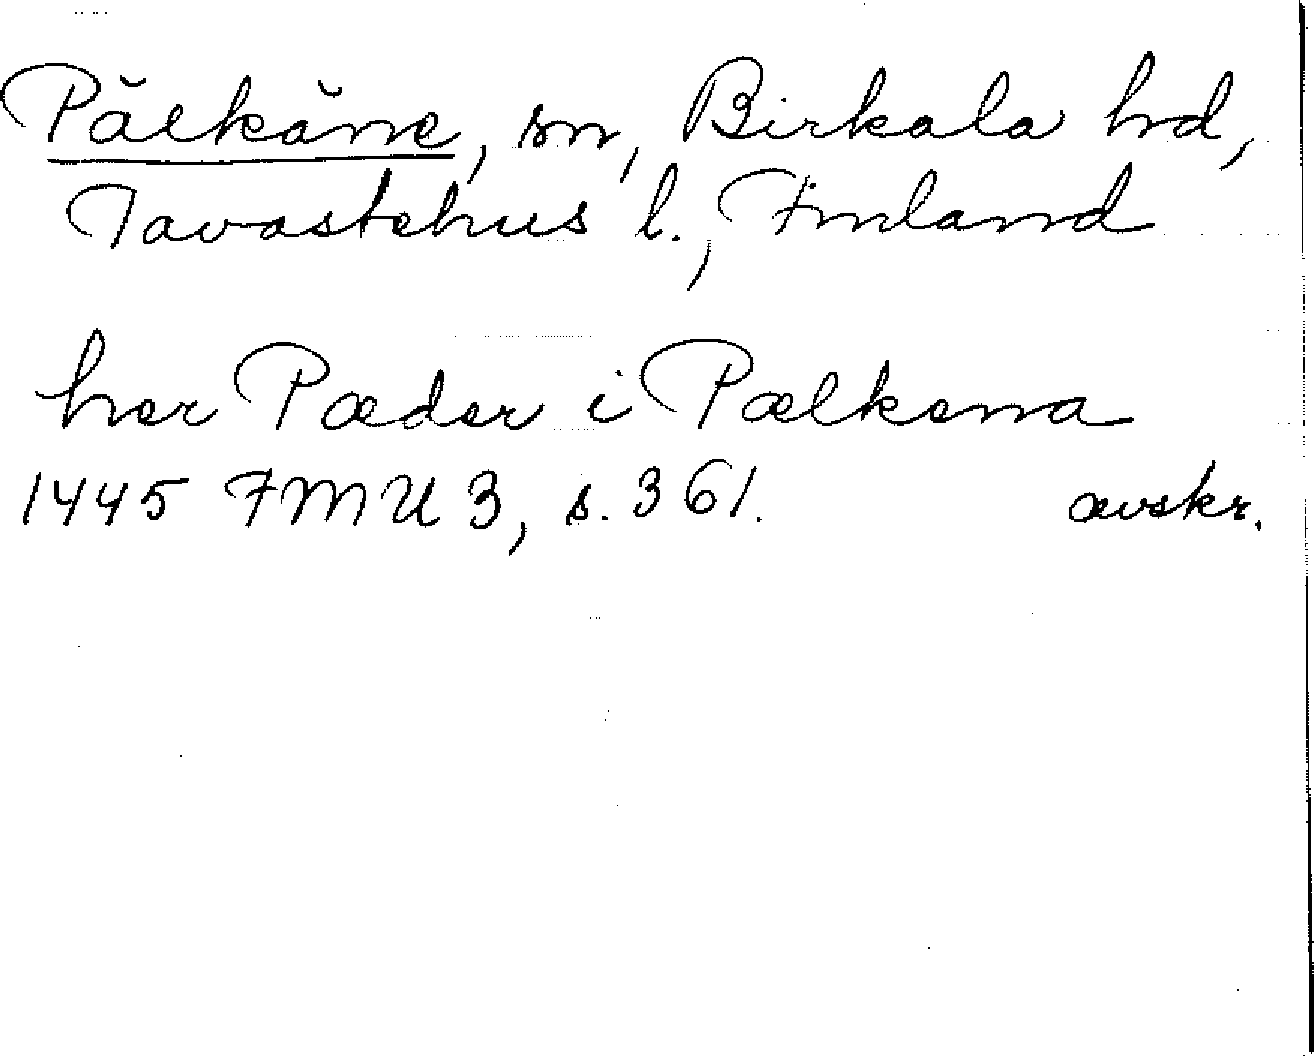 Pälkäne, sn, Birkala hd,
Tavastehus l., Finland
her Pæder i Pælkena
1445 FMU 3, s. 361. avskr.